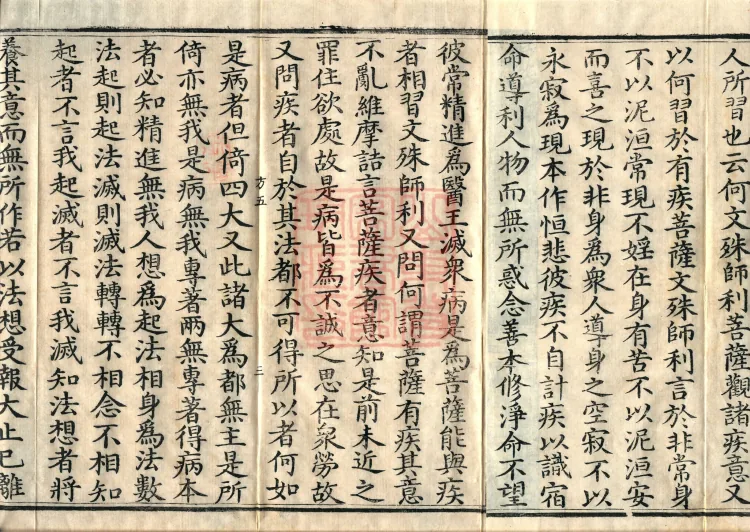 人所習也云何文殊師利菩薩觀諸疾意又
以何習於有疾菩薩文殊師利言於非常身
不以泥洹常現不婬在身有苦不以泥洹安
而喜之現於非身爲衆人導身之空寂不以
永寂爲現本作恒悲彼疾不自計疾以識宿
命導利人物而無所惑念善本修淨命不望
彼常精進爲醫王滅衆病是爲菩薩能與疾
者相習文殊師利又問何謂菩薩有疾其意
不亂維摩詰言菩薩疾者意知是前未近之
罪住欲處故是病皆爲不誠之思在衆勞故
又問疾者自於其法都不可得所以者何如
方五
三
是病者但倚四大又此諸大爲都無主是所
倚亦無我是病無我專著兩無專著得病本
者必知精進無我人想爲起法相身爲法數
法起則起法滅則滅法轉轉不相念不相知
起者不言我起滅者不言我滅知法想者將
養其意而無所作若以法想受報大止已離